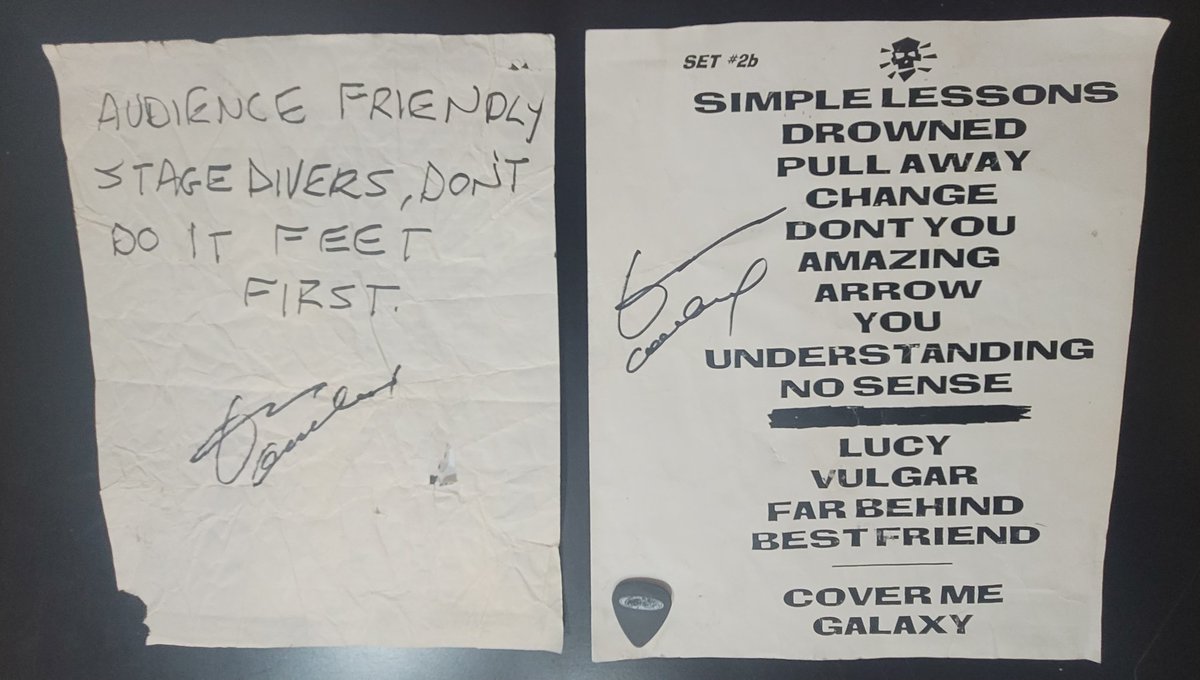 AUDIENCE FRIENDLY
STAGE DIVERS, DON'T
DO IT FEET
FIRST.
SET #2b
SIMPLE LESSONS
DROWNED
PULL AWAY
CHANGE
DONT YOU
AMAZING
ARROW
YOU
UNDERSTANDING
NO SENSE
LUCY
VULGAR
FAR BEHIND
BEST FRIEND
COVER ME
GALAXY